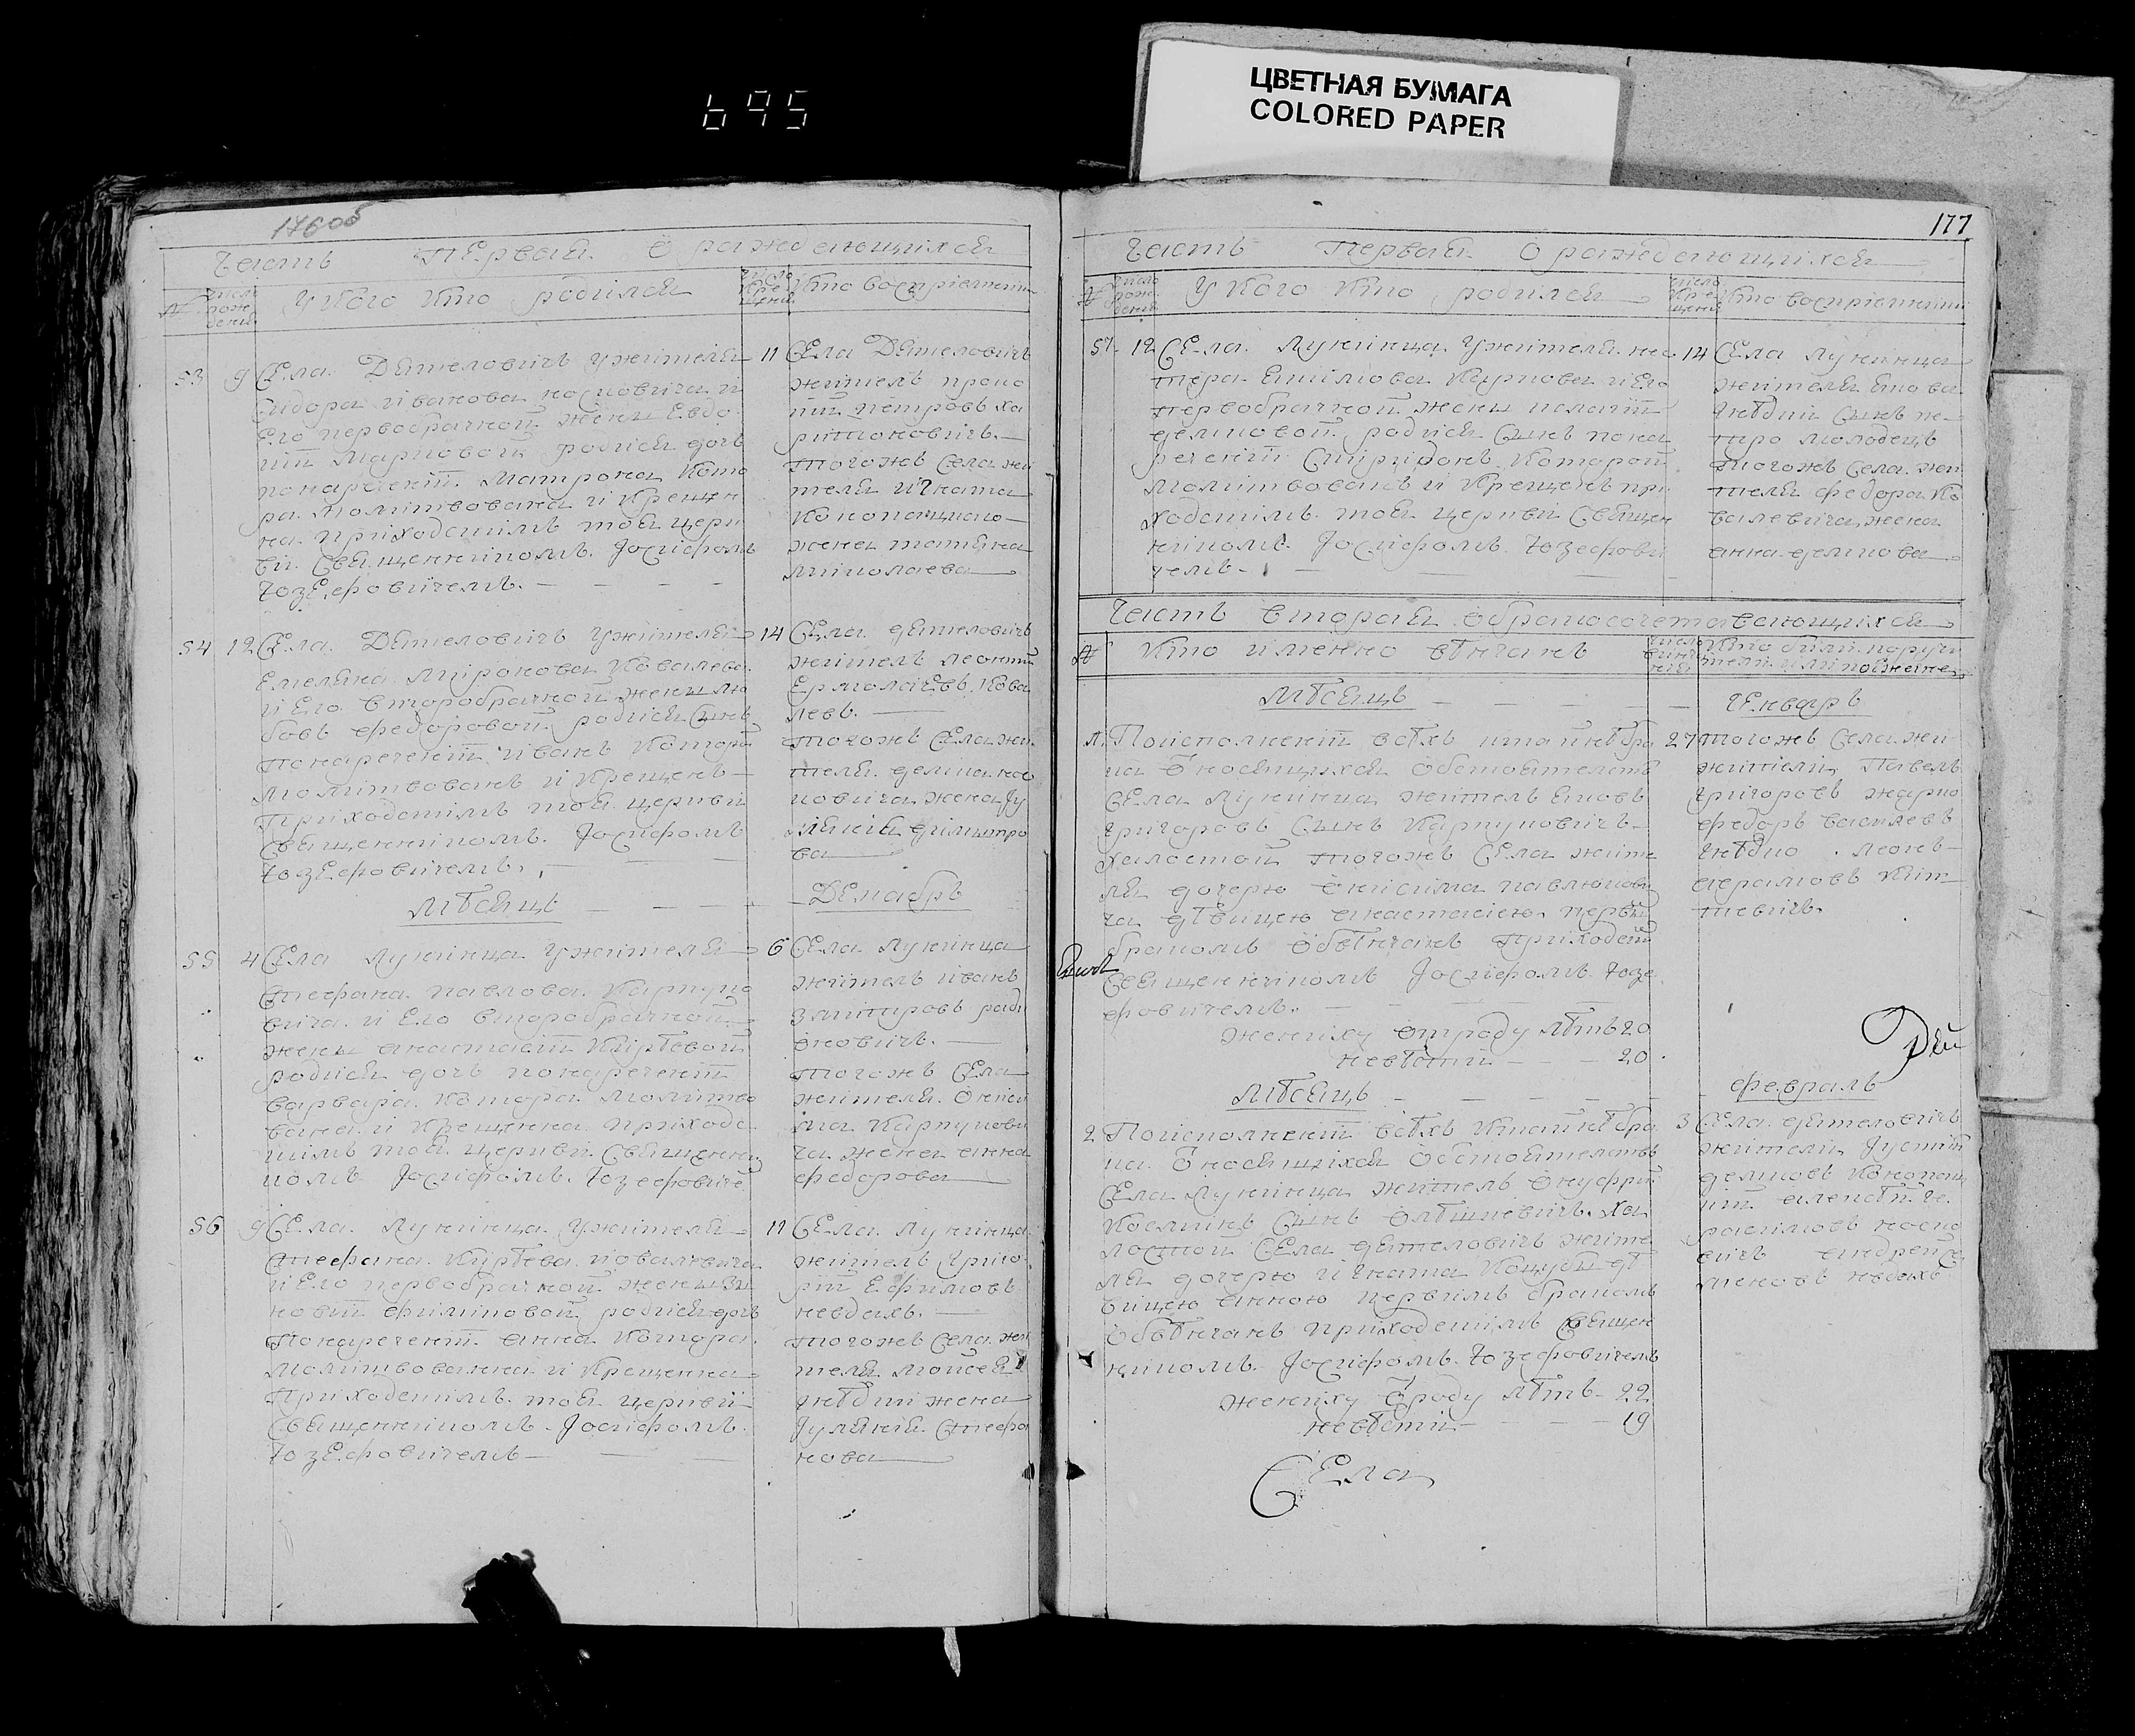 695
ЦВЕТНАЯ БУМАГА
COLORED PAPER
176 об
Часть Первая О раждающихся
№ число рождений У кого кто родился число крещений Кто восприемники
53 9 Села Дѣтеловичъ Ужителя
Сидора Иванова
Его первобрачной жены Евдо
кіи Марковой родися дочь
понареченіи Матрона Кото
ра Молитвована и Крещен
на приходскимъ тоя церк
ви Священникомъ Іосифомъ
Юзефовичемъ
11 Села Дѣтеловичъ
житель проко
пій Петровъ Ха
ритоновичъ
тогожъ Села жи
теля Игната
жена татьяна
Миколаева
54 12 Села Дѣтеловичъ Ужителя
Емеляна Миронова Ковалева
и Его второбрачной жены лю
бовъ Федоровой родися Сынъ
понареченіи Иванъ Которой
молитвованъ и Крещенъ
приходскимъ тоя церкви
Священникомъ Іосифомъ
Юзефовичемъ
14 Села дѣтеловичъ
житель леонтій
Ермолаевъ Кова
левъ
тогожъ Села жи
теля
жена Іу
ліянія димитро
ва
Мѣсяцъ Декабрь
55 4 Села Лунинца Ужителя
Стефана Павлова Карпуко
вича и Его второбрачной
жены анастасіи Кирѣевой
родися дочь понареченіи
варвара Котора молитво
вана и Крещенна приход
скимъ тоя церкви Священни
комъ Іосифомъ Юзефовиче
6 Села Лунинца
житель Иванъ
Змитровъ Ради
оновичъ
тогожъ Села
жителя Ониси
ма Карпукови
ча жена анна
Федорова
56 9 Села Лунинца Ужителя
Стефана Кирѣева Ковалевича
и Его первобрачной жены Зи
новіи Филиповой родися дочь
понареченіи анна Котора
Молитвованна и Крещенна
Приходскимъ тоя церкви
Священникомъ Іосифомъ
Юзефовичемъ
11 Села Лунинца
житель Григо
рій Ефимовъ
невдахъ
тогожъ Села жи
теля Мойсея
гнѣдки жена
Іулянія Стефа
нова
177
Часть первая О раждающихся
№ число рождений У кого кто родился число крещений Кто восприемники
57 12 Села Лунинца Ужителя не
стера Климова Карпова и Его
первобрачной жены палагіи
демковой родися Сынъ пона
реченіи Спиридонъ Которой
Молитвованъ и Крещенъ при
ходскимъ тоя церкви Священ
никомъ Іосифомъ Юзефови
чемъ
14 Села Лунинца
жителя якова
гнѣдки Сынъ пе
тро молодецъ
тогожъ Села жи
теля федора Ко
валевича жена
анна демкова
Часть вторая О бракосочетавающихся
№ Кто именно вѣнчанъ число венчания Кто были поручители или поезжане
Мѣсяцъ Генварь
1 Поисполненіи всѣхъ Ктайнѣ бра
ка Относящихся Обстоятелствъ
Села Лунинца житель яковъ
Григоровъ Сынъ Карпуковичъ
Халостой тогожъ Села жите
ля дочерю Онисима павлюкови
ча дѣвицею анастасіею первым
бракомъ Обвѣнчанъ приходским
Священникомъ Іосифомъ Юзе
фовичемъ
27 тогожъ Села жи
жители Павелъ
Григоревъ
федоръ василевъ
гнѣдко
аврамовъ Кит
кевичъ
Жениху Отроду лѣтъ 20
невѣсти 20
Мѣсяцъ Февраль
2 Поисполненіи всѣхъ Ктайнѣ бра
ка Относящихся Обстоятелствъ
Села Лунинца житель Онуфрій
Космінъ Сынъ Ха
лостой Села дѣтеловичъ жите
ля дочерю Игната дѣ
вицею анною первимъ бракомъ
Обвѣнчанъ приходскимъ Священ
никомъ Іосифомъ Юзефовичемъ
3 Села дѣтеловичъ
жители Іустинъ
демковъ
Ге
расимовъ
андрей Се
меновъ невдахъ
Жениху Отроду лѣтъ 22
невѣсти 19
Села